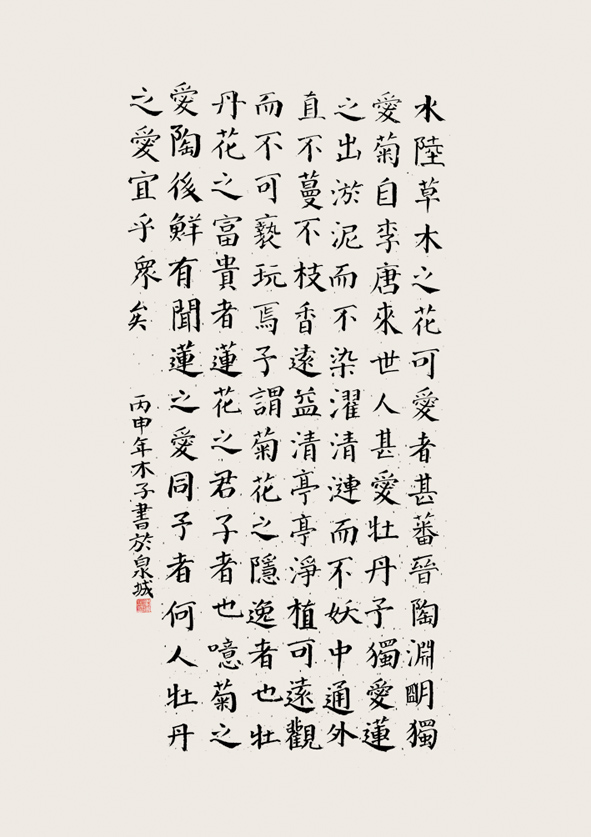 水陸草木之花可愛者甚蕃晉陶淵明獨
愛菊自李唐來世人甚愛牡丹子獨愛蓮
之出淤泥而不染濯清漣而不妖中通外
直不蔓不枝香遠益清亭亭淨植可遠觀
而不可褻玩焉子謂菊花之隱逸者也牡
丹花之富貴者蓮花之君子者也噫菊之
愛陶後鮮有聞蓮之愛同予者何人牡丹
之愛宜乎眾矣
丙申年木子書於泉城